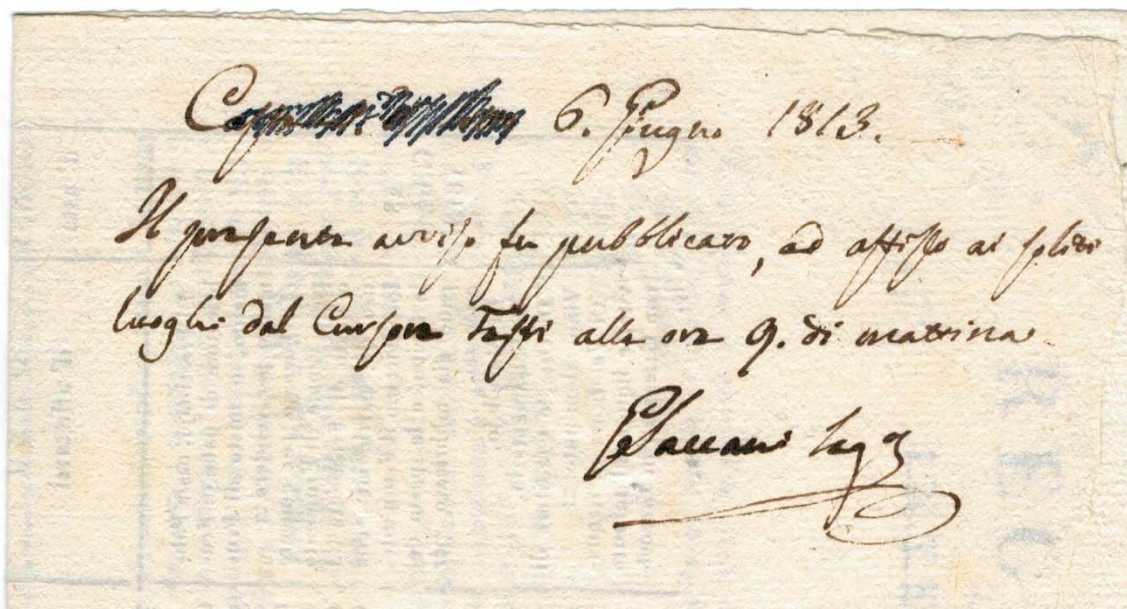 6. Giugno 1813.
Il presente avviso fu pubblicato, ed affisso ai soliti
luoghi dal Cursore Tassi alle ore 9. di mattina
Saccani Seg.º